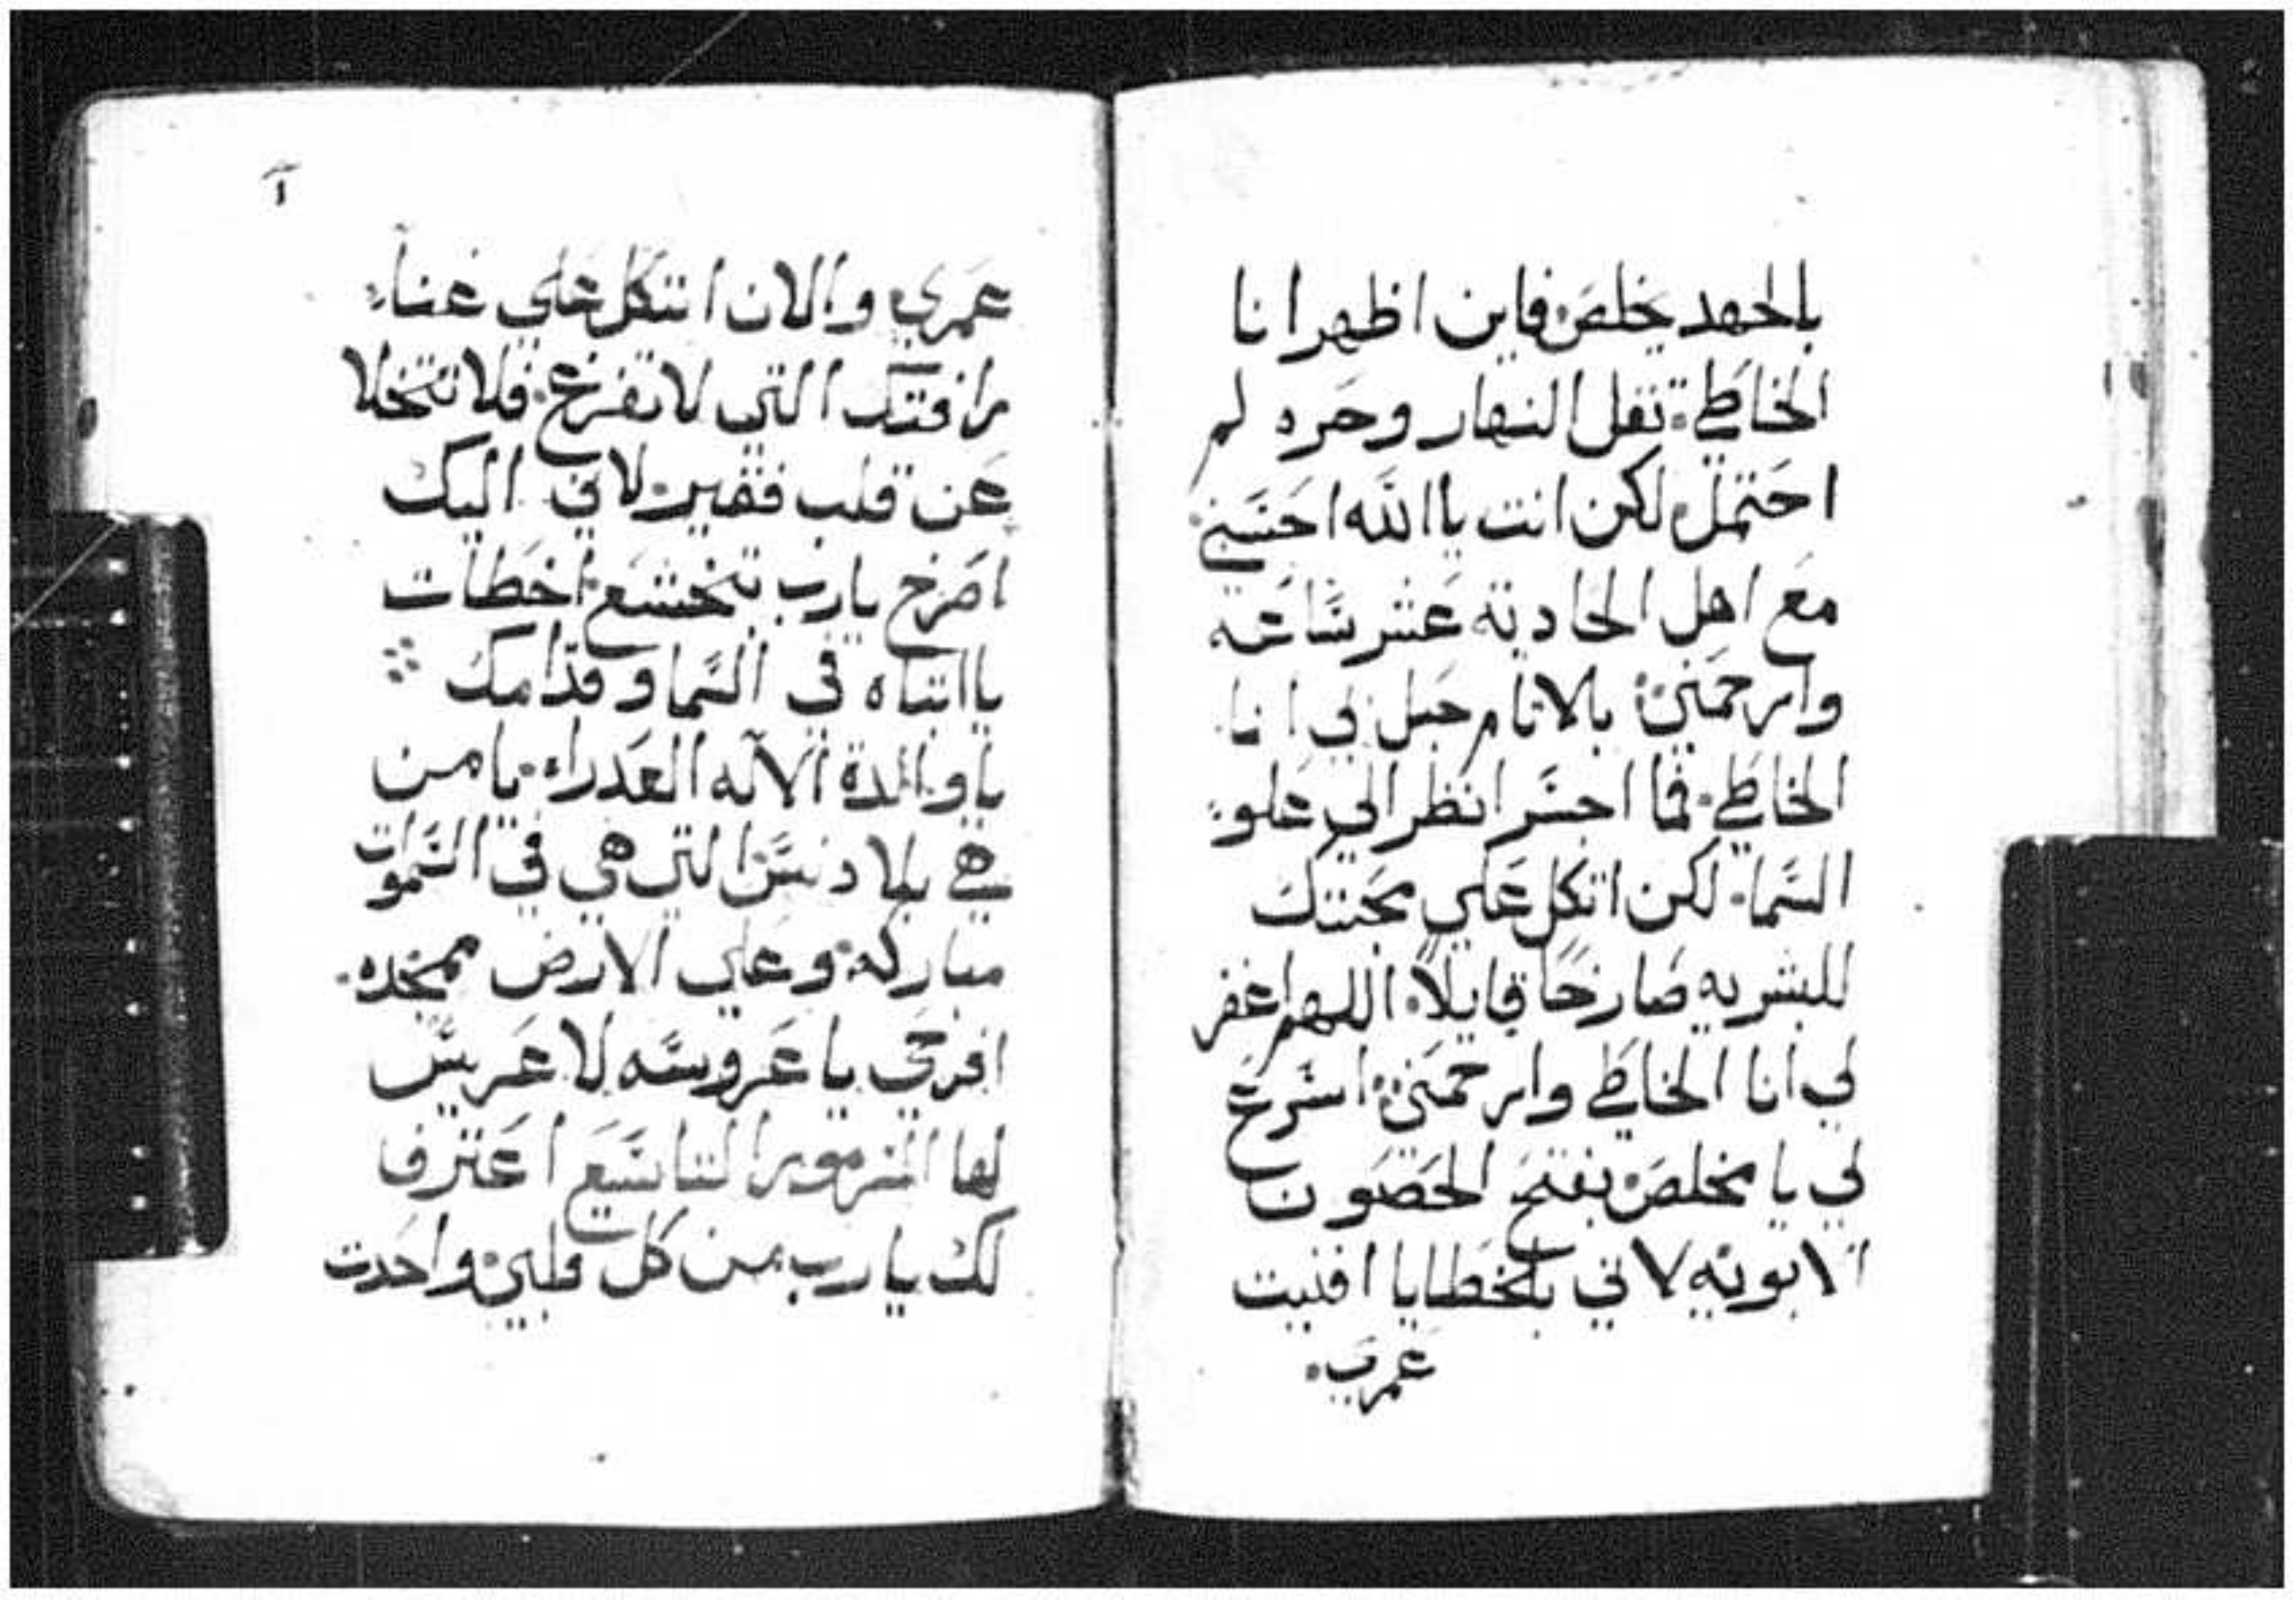 بالجهد يخلص فاين اظهر انا
الخاطي ثقل النهار وحره لم
احتمل لكن انت ياالله احسبني
مع اهل الحاديه عشر ساعه
وارحمني بالاثام حبل بي انا
الخاطي فما اجسر انظر الي علو
السما لكن اتكل علي محبتك
للبشريه صارخًا قايلاً اللهم اغفر
لي انا الخاطي وارحمني اسرع
لي يا مخلص بفتح الحضون
الابويه لاني بالخطايا افنيت
عمري
عمري والان اتكل علي غناء
رافتك التي لا تفرغ فلا تتخلا
عن قلب فقير لاني اليك
اصرخ يارب بتخشع اخطات
ياابتاه في السما وقدامك
ياوالدة الاله العدراء يا من
هي بلا دنس التي هي في السموات
مباركه وعلي الارض ممجده
افرحي يا عروسه لا عريس
لها المزمور التاسع اعترف
لك يا رب من كل قلبي واحدت